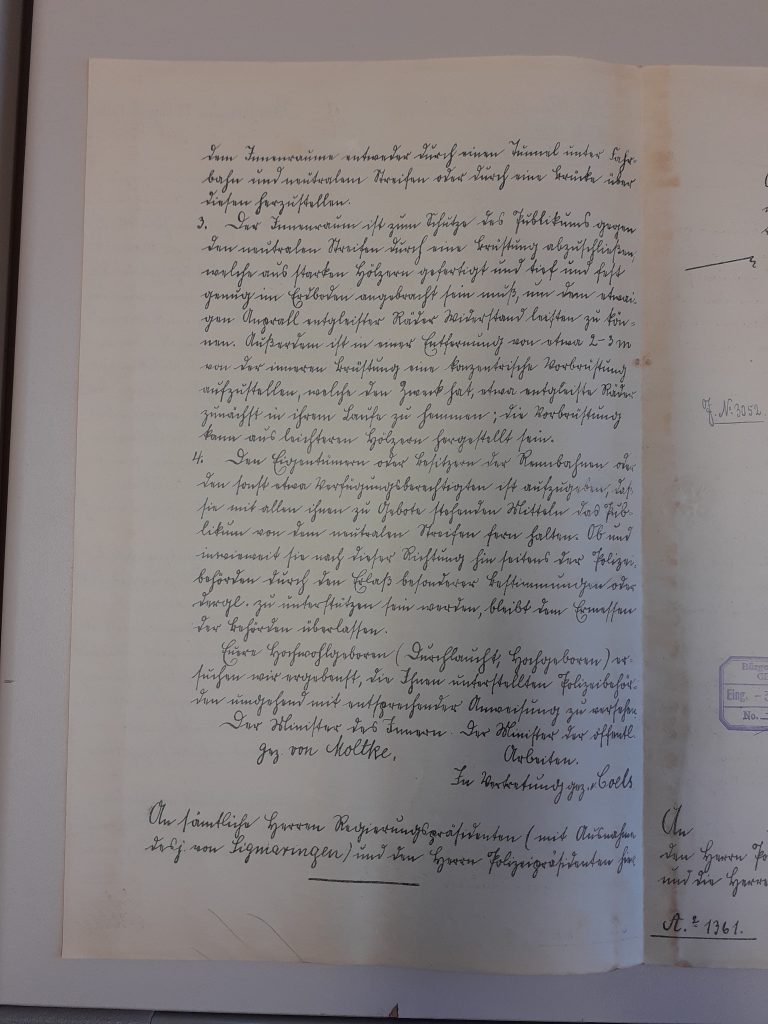 dem Innenraume entweder durch einen Tunnel unter Fahr-
bahn und neutralem Streifen oder durch eine Brücke über
diesen herzustellen.
3. Der Innenraum ist zum Schutze des Publikums gegen
den neutralen Streifen durch eine Brüstung abzuschließen,
welche aus starken Hölzern gefertigt und tief und fest
genug im Erdboden angebracht sein muß, um dem etwai-
gen Anprall entgleister Räder Widerstand leisten zu kön-
nen. Außerdem ist in einer Entfernung von etwa 2-3 m
von der inneren Brüstung eine konzentrische Vorbrüstung
aufzustellen, welche den Zweck hat, etwa entgleiste Räder
zunächst in ihrem Laufe zu hemmen; die Vorbrüstung
kann aus leichteren Hölzern hergestellt sein.
4. Den Eigentümern oder Besitzern der Rennbahnen oder
den sonst etwa Verfügungsberechtigten ist aufzugeben, daß
sie mit allen ihnen zu Gebote stehenden Mitteln das Pub-
likum von dem neutralen Streifen fern halten. Ob und
inwieweit sie nach dieser Richtung hin seitens der Polizei-
behörden durch den Erlaß besonderer Bestimmungen oder
dergl. zu unterstützen sein werden, bleibt dem Ermessen
der Behörden überlassen.
Euere Hochwohlgeboren (Durchlaucht, Hochgeboren) er-
suchen wir ergebenst, die Ihnen unterstellten Polizeibehör-
den umgehend mit entsprechender Anweisung zu versehen
Der Minister des Innern. Der Minister der öffentl.
gez. von Moltke. Arbeiten.
In Vertretung gez.
An sämtliche Herren Regierungspräsidenten (mit Ausnahme
desj. von Sigmaringen) und den Herrn Polizeipräsidenten
J. No 3052.
Bürge
Eing.
No.
An
den Herrn Po
und die Herre
A. 2 1361.